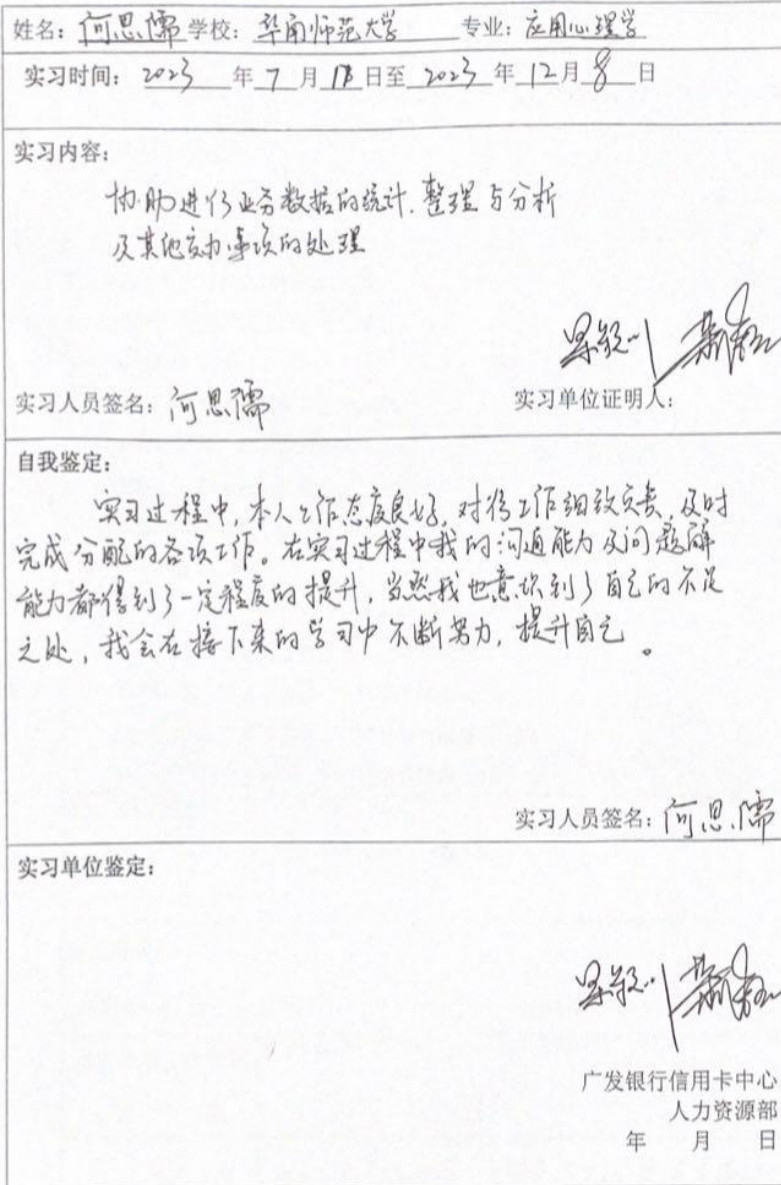 姓名：何思儒 学校：华南师范大学 专业：应用心理学
实习时间：2023 年 7 月 18 日至 2023 年 12 月 8 日
实习内容：
协助进行业务数据的统计.整理与分析
及其他交办事项的处理
实习人员签名：何思儒 实习单位证明人：
自我鉴定：
实习过程中,本人工作态度良好,对待工作细致负责,及时
完成分配的各项工作。在实习过程中我的沟通能力及问题解
能力都得到了一定程度的提升,当然我也意识到了自己的不足
之处,我会在接下来的学习中不断努力,提升自己。
实习人员签名：何思儒
实习单位鉴定：
广发银行信用卡中心
人力资源部
年 月 日